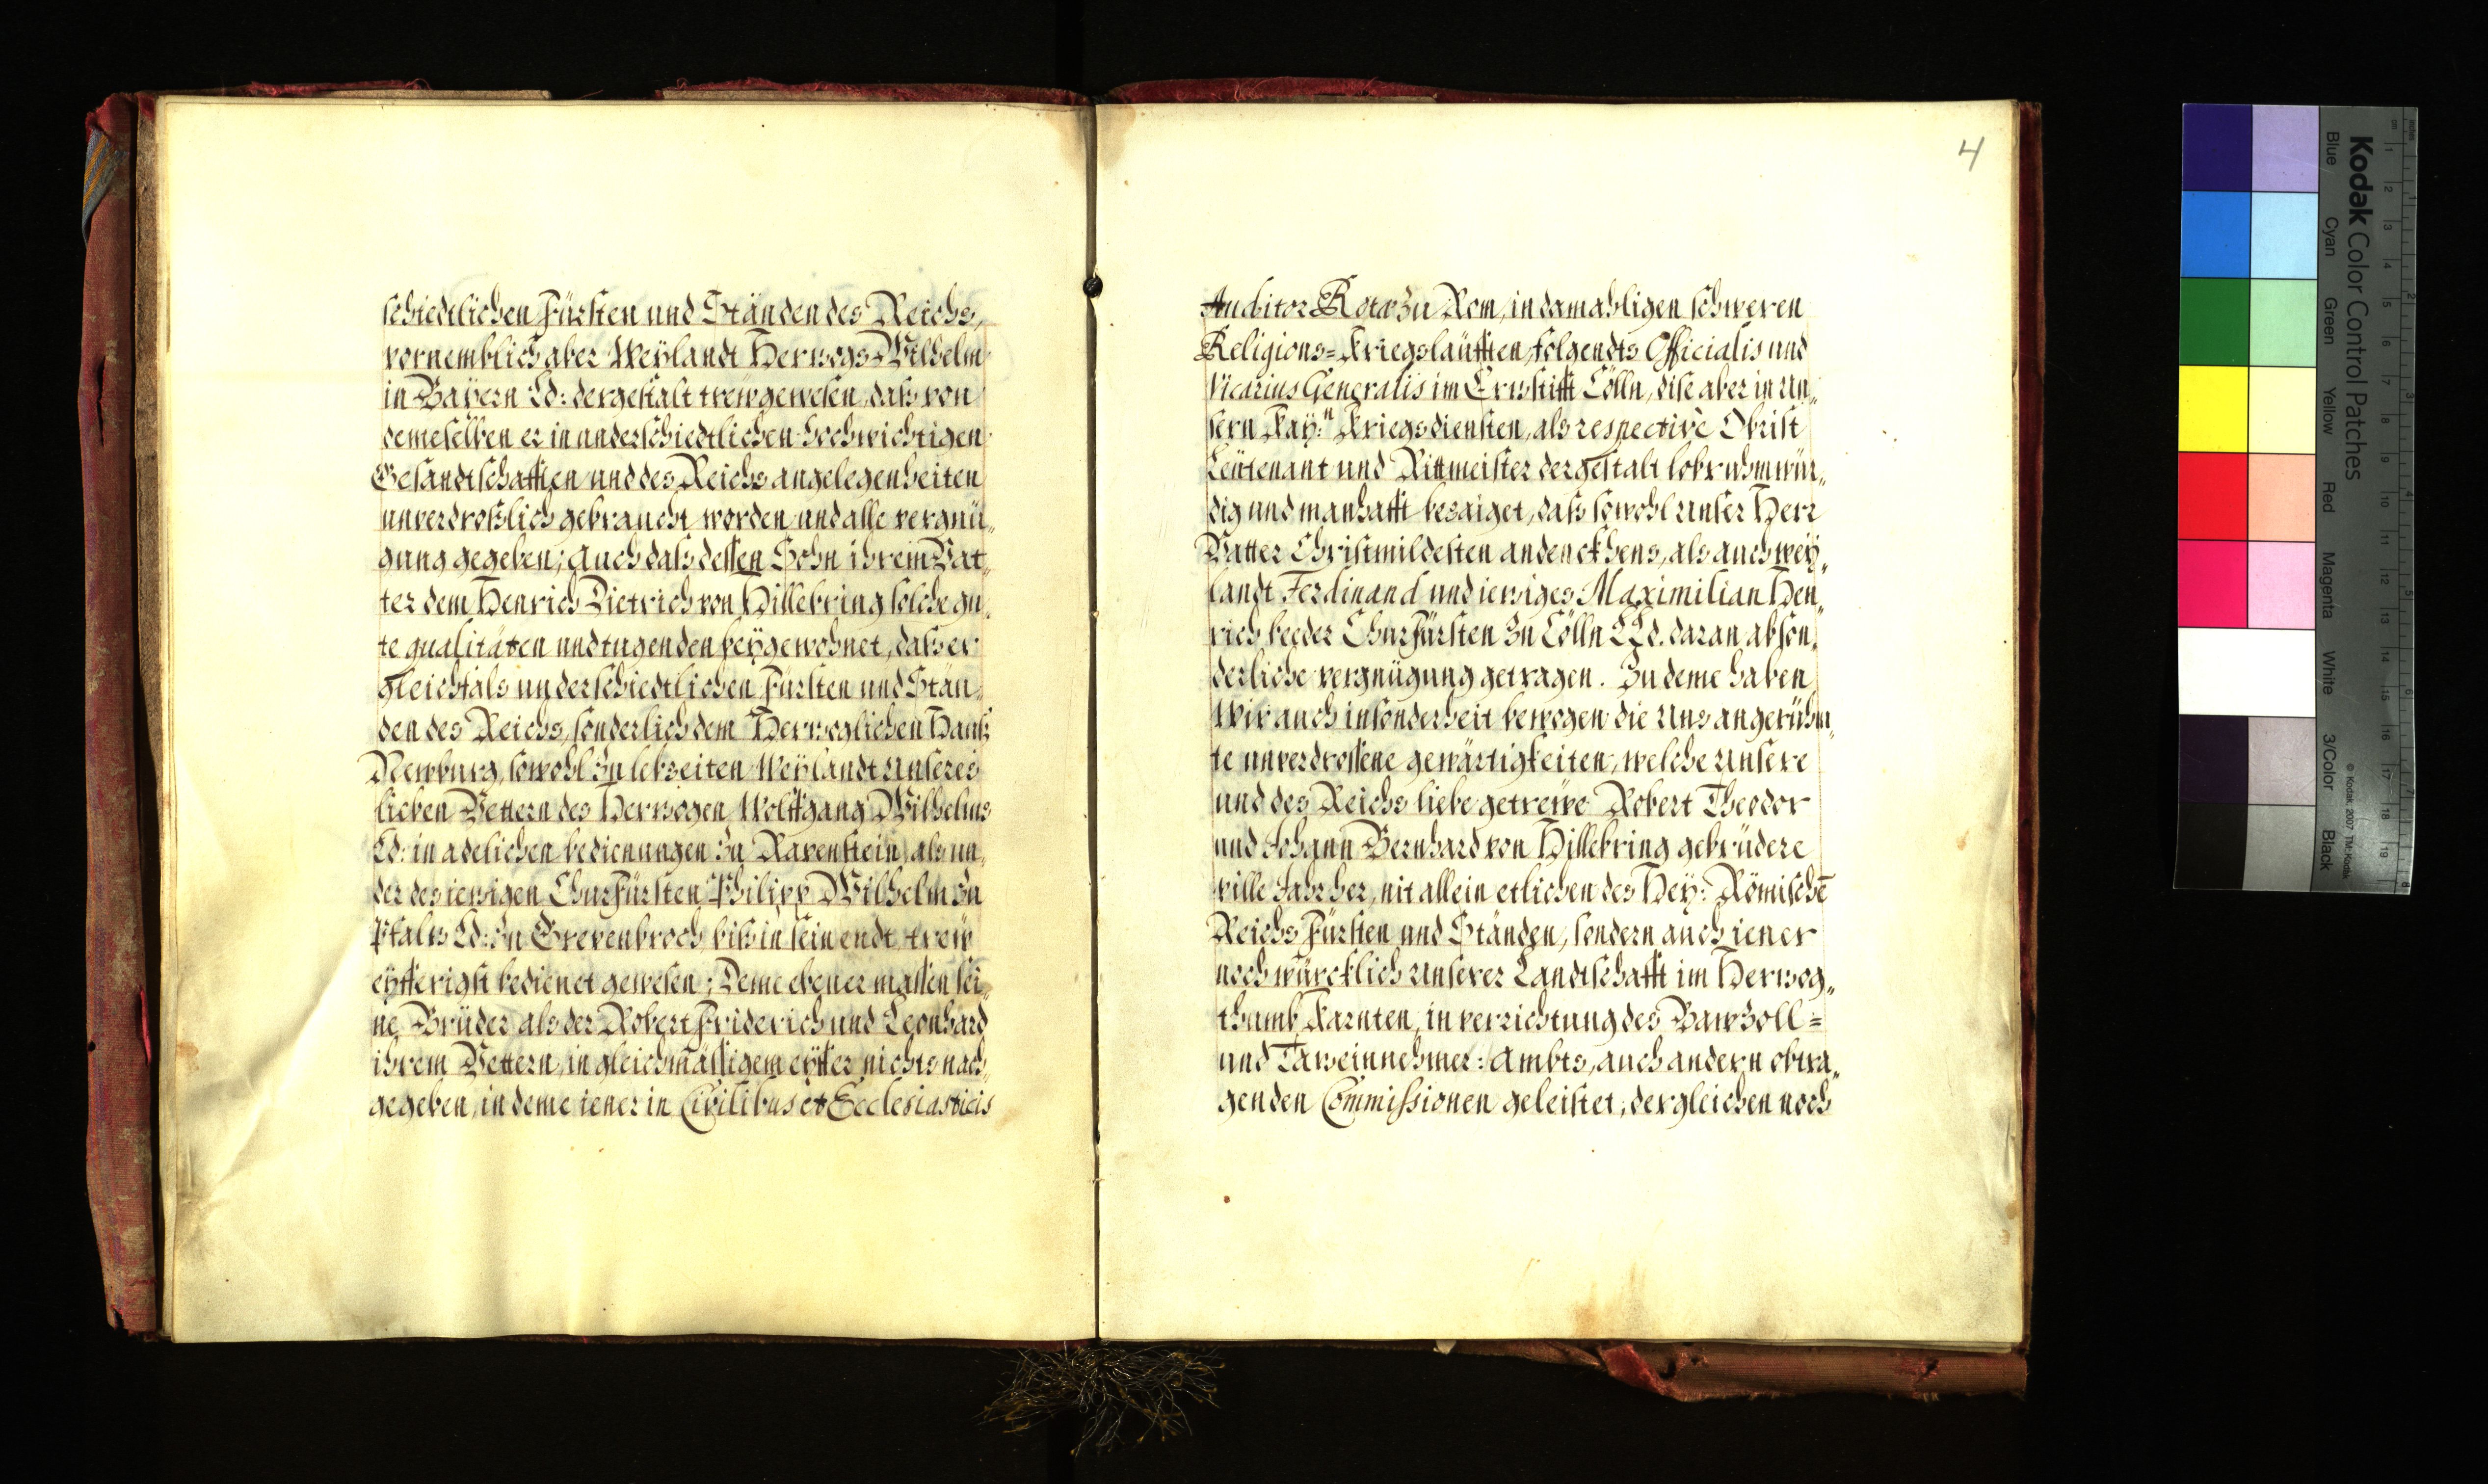 schiedtlichen Fürsten und Ständen des Reichs,
vornemblich aber Weÿlandt Herzogs Wilhelm
in Baÿern Ld: dergestalt trew gewesen, daß von
demeselben er in underschiedtlichen hochwichtigen
Gesandtschafften und des Reichs angelegenheiten
unverdroßlich gebraucht worden und alle vergnü„
gung gegeben; auch daß dessen Sohn ihrem Vat„
ter dem Henrich Dietrich von Hillebring solche gu„
te qualitäten und tugenden beÿgewohnet, daß er
gleichfals underschiedtlichen Fürsten und Stän„
den des Reichs, sonderlich dem Herzoglichen Hauß
Newburg, sowohl zu lebzeiten Weÿlandt Unseres
lieben Vettern des Herzogen Wolffgang Wilhelms
Ld: in adelichen bedienungen zu Ravenstein, als un„
der des iezigen ChurFürsten Philipp Wilhelm zu
Pfalz Ld: zu Grevenbroch, biß in sein endt, trew
eÿfferigst bedienet gewesen; Deme ebener massen sei„
ne Brüder als der Robert Friderich und Leonhard
ihrem Vettern, in gleichmässigem eÿffer nichts nach„
gegeben, in deme iener in Civilibus et Ecclesiasticis
4
Auditor Rotæ zu Rom, in damahligen schweren
Religions= Kriegsläufften, folgendts Officialis und
Vicarius Generalis im Erzstifft Cölln, dise aber in Un„
sern Kaÿ:n Kriegsdiensten, als respectivè Obrist
Leütenant und Rittmeister dergestalt lobruhmwür„
dig und manhafft bezaiget, daß sowohl Unser Herr
Vatter Christmildesten andenckhens, als auch weÿ„
landt Ferdinand und ieziges Maximilian Hen„
rich, beeder ChurFürsten zu Cölln LLd. daran abson„
derliche vergnügung getragen. Zu deme haben
Wir auch insonderheit bewogen die Uns angerühm„
te unverdrossene gewärtigkeiten, welche Unsere
und des Reichs liebe getrewe Robert Theodor
und Johann Bernhard von Hillebring gebrüdere
ville Jahr her, nit allein etlichen des Heÿ: Römischē
Reichs Fürsten und Ständen, sondern auch iener
noch würcklich Unserer Landtschafft im Herzog„
thumb Kärnten, in verrichtung des Bawzoll=
und Taxeinnehmer: Ambts, auch andern obtra„
genden Commissionen geleistet, dergleichen noch
Kodak Color Control Patches
Blue Cyan Green Yellow Red Magenta White 3/Color Black